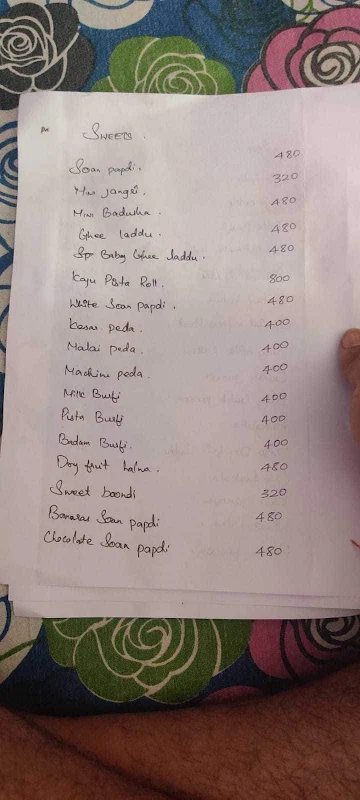 SWEETS.
Soan papdi. 480
Mini Jangri. 320
Mini Badusha. 480
Ghee laddu. 480
Spl Baby Ghee laddu. 480
Kaju Pista Roll. 800
White Soan papdi. 480
Kesar peda. 400
Malai peda. 400
Machine peda. 400
Milk Burfi 400
Pista Burfi 400
Badam Burfi. 400
Dry fruit halwa. 480
Sweet boondi 320
Banaras Soan papdi 480
Chocolate Soan papdi 480